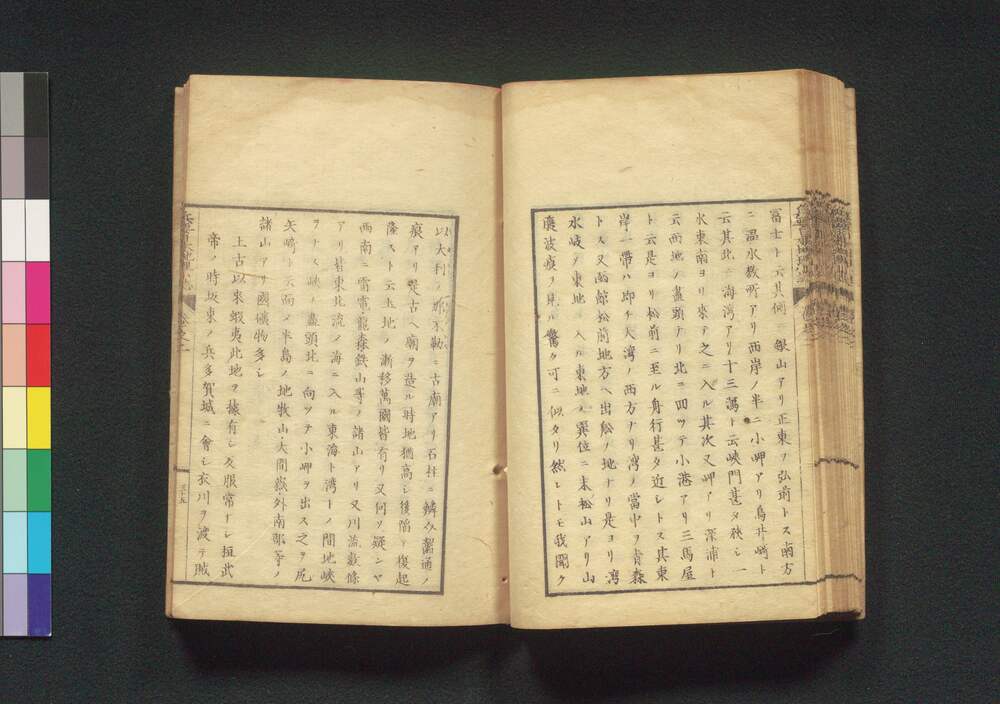 富士ト云其側ニ銀山アリ正東ヲ弘前トス南方
ニ温水数所アリ西岸ノ半ニ小岬アリ鳥井崎ト
云其北ニ海湾アリ十三潟ト云峡門甚タ狭シ一
水東南ヨリ来テ之ニ入ル其次又岬アリ深浦ト
云西地ノ盡頭ナリ北ニ回ツテ小港アリ三馬屋
ト云是ヨリ松前ニ至ル舟行甚タ近シトス其東
岸一帯ハ即チ大湾ノ西方ナリ湾ノ當中ヲ青森
トス又函館松前地方ヘ出舩ノ地ナリ是ヨリ湾
水岐ノ東地ニ入ル東地ノ巽位ニ末松山アリ山
腹波痕ヲ見ル驚ク可ニ似タリ然レトモ我聞ク
以大利ノ
ニ古廟アリ石柱ニ鱗介鑿通ノ
痕アリ是古ヘ廟ヲ造ル時地猶高シ後陷テ復起
隆スト云土地ノ漸移萬國皆有リ又何ソ疑ンヤ
西南ニ雷電龍森鉄山等ノ諸山アリ又川流数條
アリ皆東北流ノ海ニ入ル東海ト湾一ノ間地峡
ヲナス峡ノ盡頭北ニ向ツテ小岬ヲ出ス之ヲ尻
矢崎ト云而メ半島ノ地牧山大間嶽外南部等ノ
諸山アリ國礦物多シ
上古以来蝦夷此地ヲ據有シ反服常ナシ桓武
帝ノ時坂東ノ兵多賀城ニ會シ衣川ヲ渡テ賊
巻之二
三十五